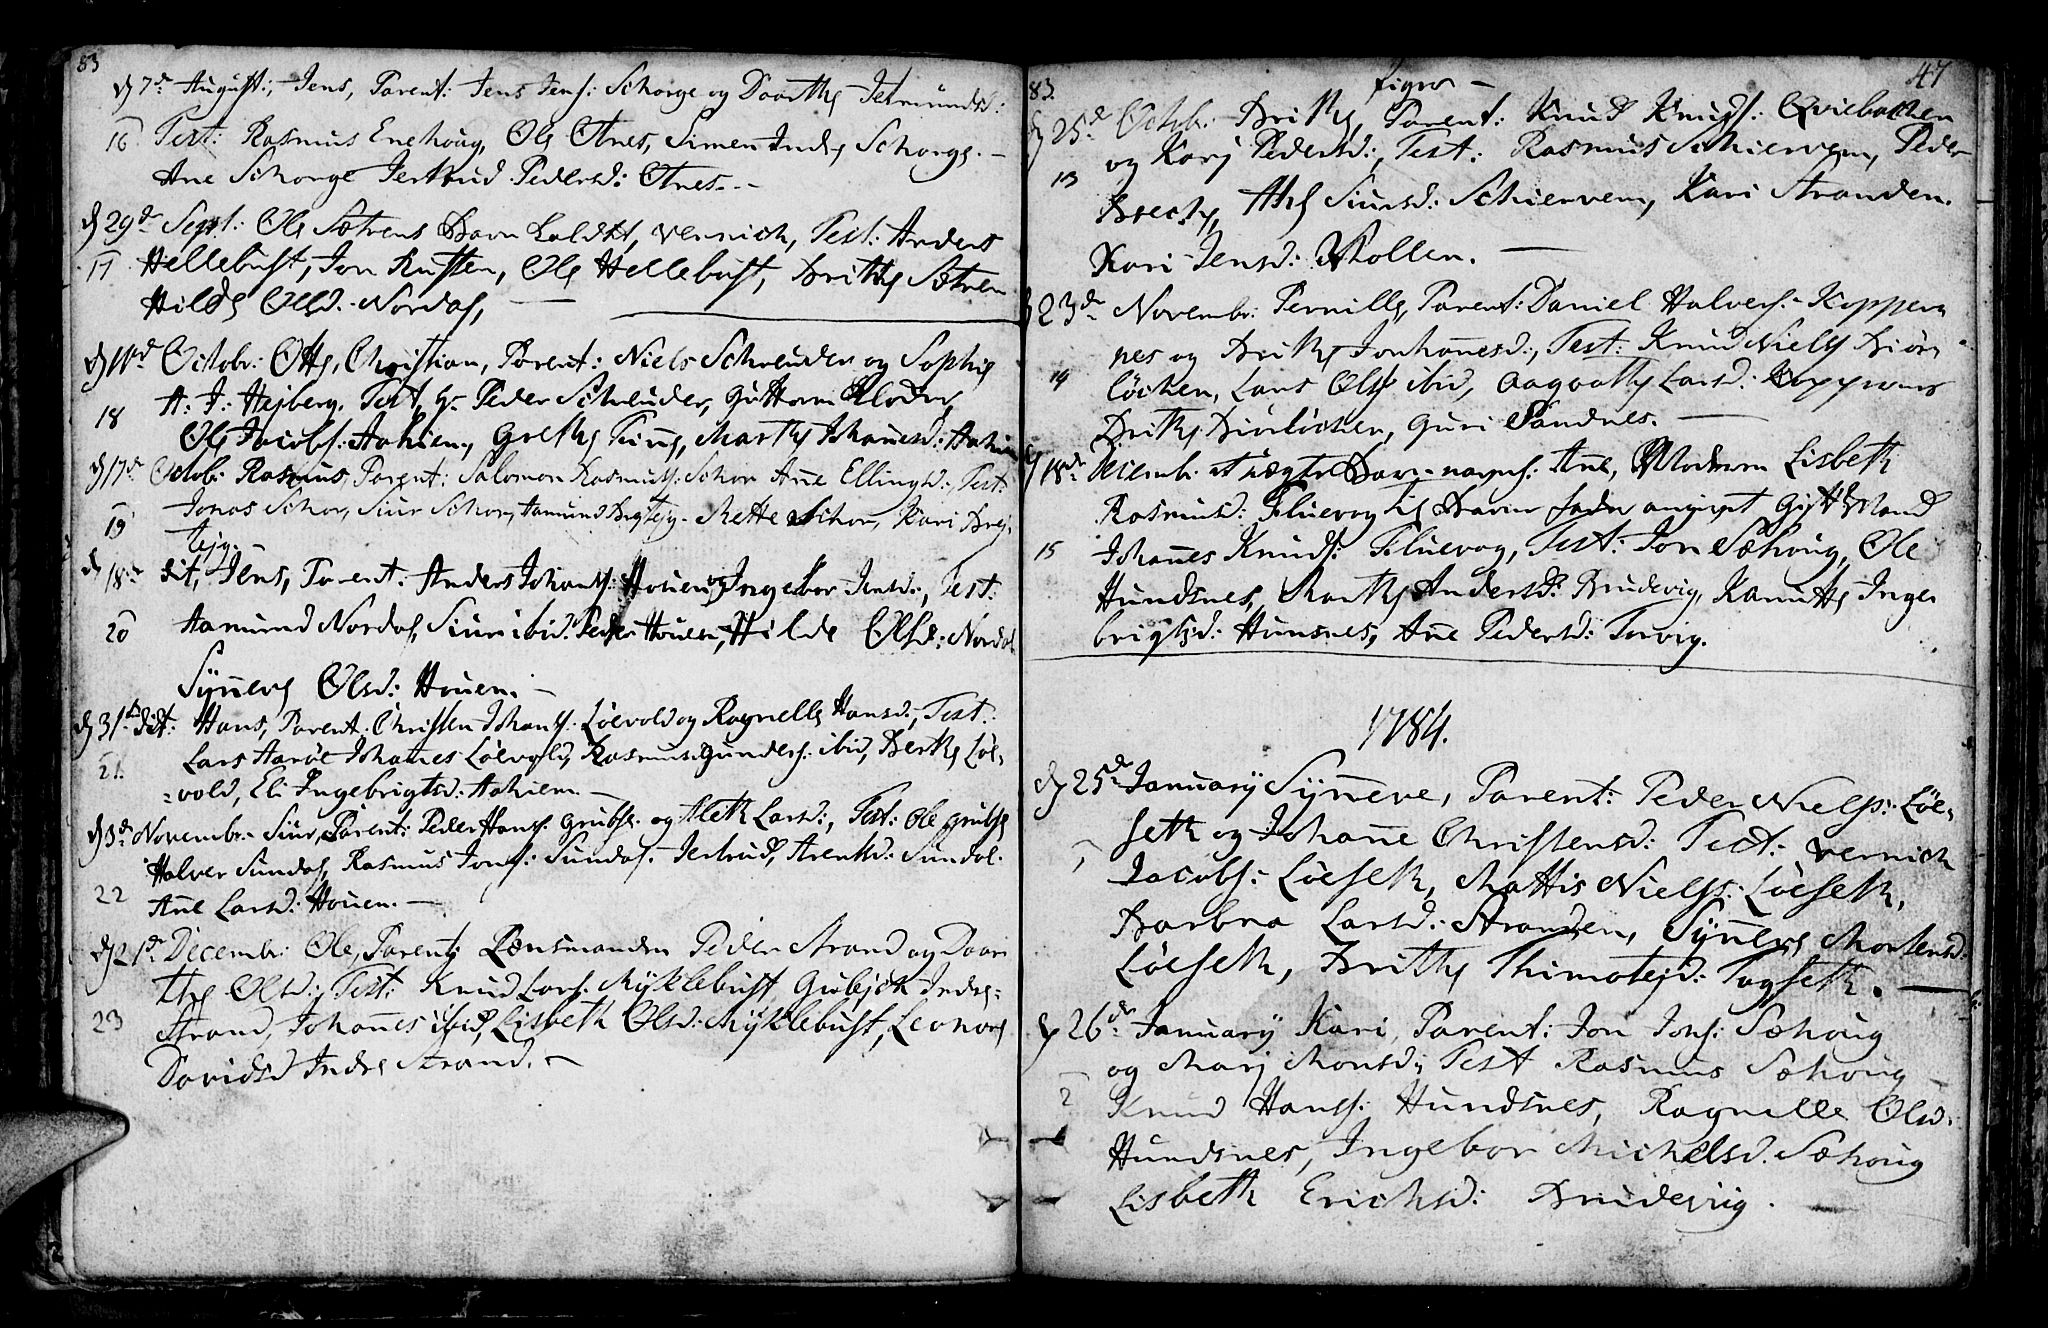 83
d 7de August:, Jens, Parent: Jens Jens: Schorge og Doorthe Jermunds:
16 Test: Rasmus Enehoug, Ole Otnes, Simen Indre Schorge. -
Ane Schorge Jertrud Pedersd: Otnes. -
d 29de Sept: Ole Sætrens Barn kaldet, Vernich, Test: Anders
17 Hellebust, Jon Rusten, Ole Hellebust, Brithe Sætren
Hilde Olsd. Nordal,
d 11te Octobr: Otte, Christian, Parent: Niels Schreuder og Sophie
A: J: Hejberg. Test, Hr. Peder Schreuder, Guttorm Kloder,
18 Ole Jacobs: Aahiem, Grethe Finne, Marthe Johanesd: Aahiem
d 17de Octob: Rasmus, Parent: Salomon Rasmuss: Schor Ane Ellingsd:, Test:
19 Jonas Schor, Siur Schor, Aamund Brytejg. Mette Schor, Kari Bry-
tejg.
d 18de dit, Jens, Parent: Anders Johans: Houen og Ingebor Jensd:, Test:
20 Aamund Nordal, Siur ibid. Peder Houen, Hilde Olsd: Nordal
Syneve Olsd: Houen. -
d 31te dit: Hans, Parent: Christen Johans: Løevold og Ragnelle Hansd:, Test:
21. Lars Aarøe Johanes Løevold, Rasmus Gunders: ibid, Berthe Løe-
=vold, Eli Ingebrigtsd: Aahiem. -
d 3de Novembr: Siur, Parent: Peder Hans: Grubse. og Aleth Larsd:, Test: Ole Grubse
Halver Sundal, Rasmus Jons: Sundal. Jertrud, Arentsd: Sundal.
22 Ane Larsd: Houen. -
d 21de Decembr: Ole, Parent: Lænsmanden Peder Strand og Door
the Olsd:, Test: Knud Lars: Myklebust, Gubjør Indre-
23 Strand, Johanes ibid, Lisbeth Olsd: Myklebust, Leonore
Davidsd Indre Strand. -
83.
47
d 25de Octob: Brithe, Parent: Knud Knuds: Qviebachen
og Karj Pedersd:, Test: Rasmus Schiervem, Peder
13 Brechе, Ahe Siursd: Schiervem, Kari Stranden.
Kari Jensd: Wollen. -
d 23de Novembr: Pernille, Parent: Daniel Halvers: Kopperne
nes og Brithe Johanesd:, Test: Knud Niels Biør-
14 løchen, Lars Ols: ibid, Aagoathe Larsd: Koppernes
Brithe Biørløchen, Guri Sandnes. -
d 18de Decemb: et uægte Barn navns: Ane, Moderen Lisbeth
Rasmusd: Fluevog til Barne fader angivet Gift Mand
15 Johanes Knuds: Fluevog, Test: Jon Sæhoug, Ole
Hundsnes, Marthe Andersd: Brudevig, Kanutte Inge
brigtsd: Hunsnes, Ane Pedersd: Torvig.
1784.
d 25de January Synneve, Parent: Peder Niels: Løe-
seth og Johane Christensd: Test: Vernich
1 Jacobs: Løeseth, Mattis Niels: Løeseth,
Barbra Larsd: Stranden, Syneve Mortensd:
Løeseth, Brithe Thimotejd: Tagseth. -
d 26de January Kari, Parent: Jon Jons: Sæhoug
og Marj Monsd:, Test Rasmus Sæhoug -
2 Knud Hans: Hundsnes, Ragnille Olsd.
Hundsnes, Ingebor Michelsd. Sæhoug
Lisbeth Erichsd: Brudevig. -